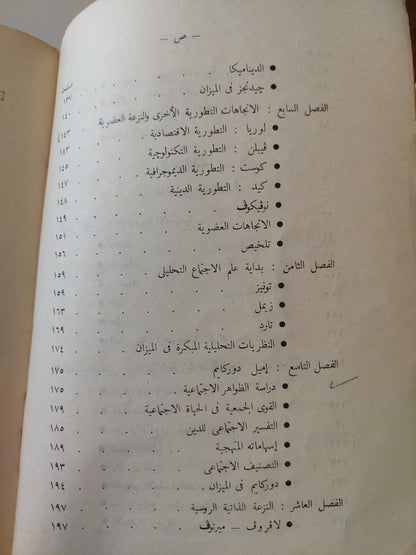 — ص —
صفحة
● الديناميكا . . . . . ١٣٧
● جيدنجز فى الميزان . . . . ١٤٠
الفصل السابع : الاتجاهات التطورية الأخرى والنزعة العضوية ١٤٣
● لوريا : التطورية الاقتصادية . . . ١٤٣
● ڤيبلن : التطورية التكنولوچية . . . ١٤٥
● كوست : التطورية الديموجرافية . . . ١٤٧
● كيد : التطورية الدينية . . . . ١٤٨
● نوڤيكوڤ . . . . . ١٤٩
● الاتجاهات العضوية . . . . ١٥١
● تلخيص . . . . . ١٥٦
الفصل الثامن : بداية علم الاجتماع التحليلى . . ١٥٩
● تونيز . . . . . ١٥٩
● زيمل . . . . . ١٦٣
● تارد . . . . . ١٦٩
● النظريات التحليلية المبكرة فى الميزان . . ١٧٤
الفصل التاسع : إميل دوركايم . . . . ١٧٥
● دراسة الظواهر الاجتماعية . . . ١٧٥
● القوى الجمعية فى الحياة الاجتماعية . . ١٧٩
● التفسير الاجتماعى للدين . . . ١٨٥
● إسهاماته المنهجية . . . . ١٨٩
● التصنيف الاجتماعى . . . . ١٩٣
● دوركايم فى الميزان . . . . ١٩٤
الفصل العاشر : النزعة الذاتية الروسية . . . ١٩٧
● لاڤروڤ — ميرتوڤ . . . . ١٩٧